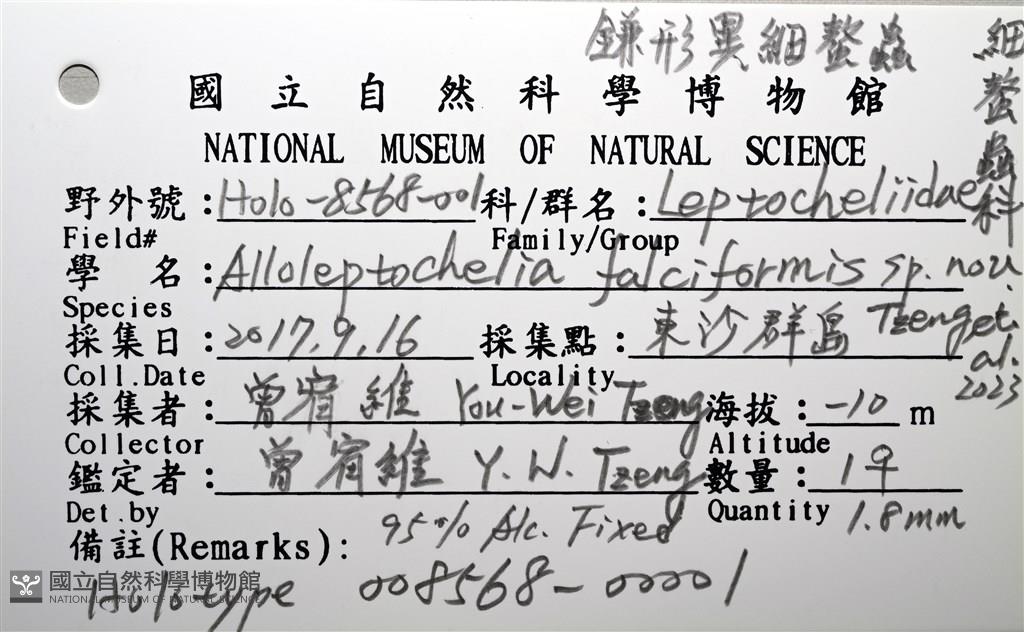 鎌形異細螯蟲
細螯蟲科
國立自然科學博物館
NATIONAL MUSEUM OF NATURAL SCIENCE
野外號:Holo-8568-001 科/群名:Leptocheliidae
Field# Family/Group
學名:Alloleptochelia falciformis sp. nov.
Species
Tzeng et. al. 2023
採集日:2017.9.16 採集點:東沙群島
Coll.Date Locality
採集者:曾宥維 You-Wei Tzeng 海拔:-10 m
Collector Altitude
鑑定者:曾宥維 Y. W. Tzeng 數量:1♀
Det.by Quantity 1.8mm
備註(Remarks): 95% Alc. Fixed
Holotype 008568-00001
國立自然科學博物館
NATIONAL MUSEUM OF NATURAL SCIENCE